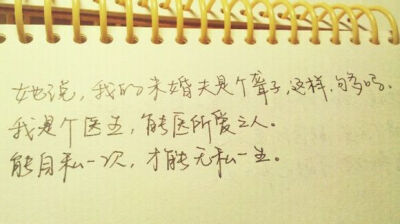 她说，我的未婚夫是个聋子，这样，句多吗．
我是个医生，能医所爱之人。
能自私一次，才能无私一生。